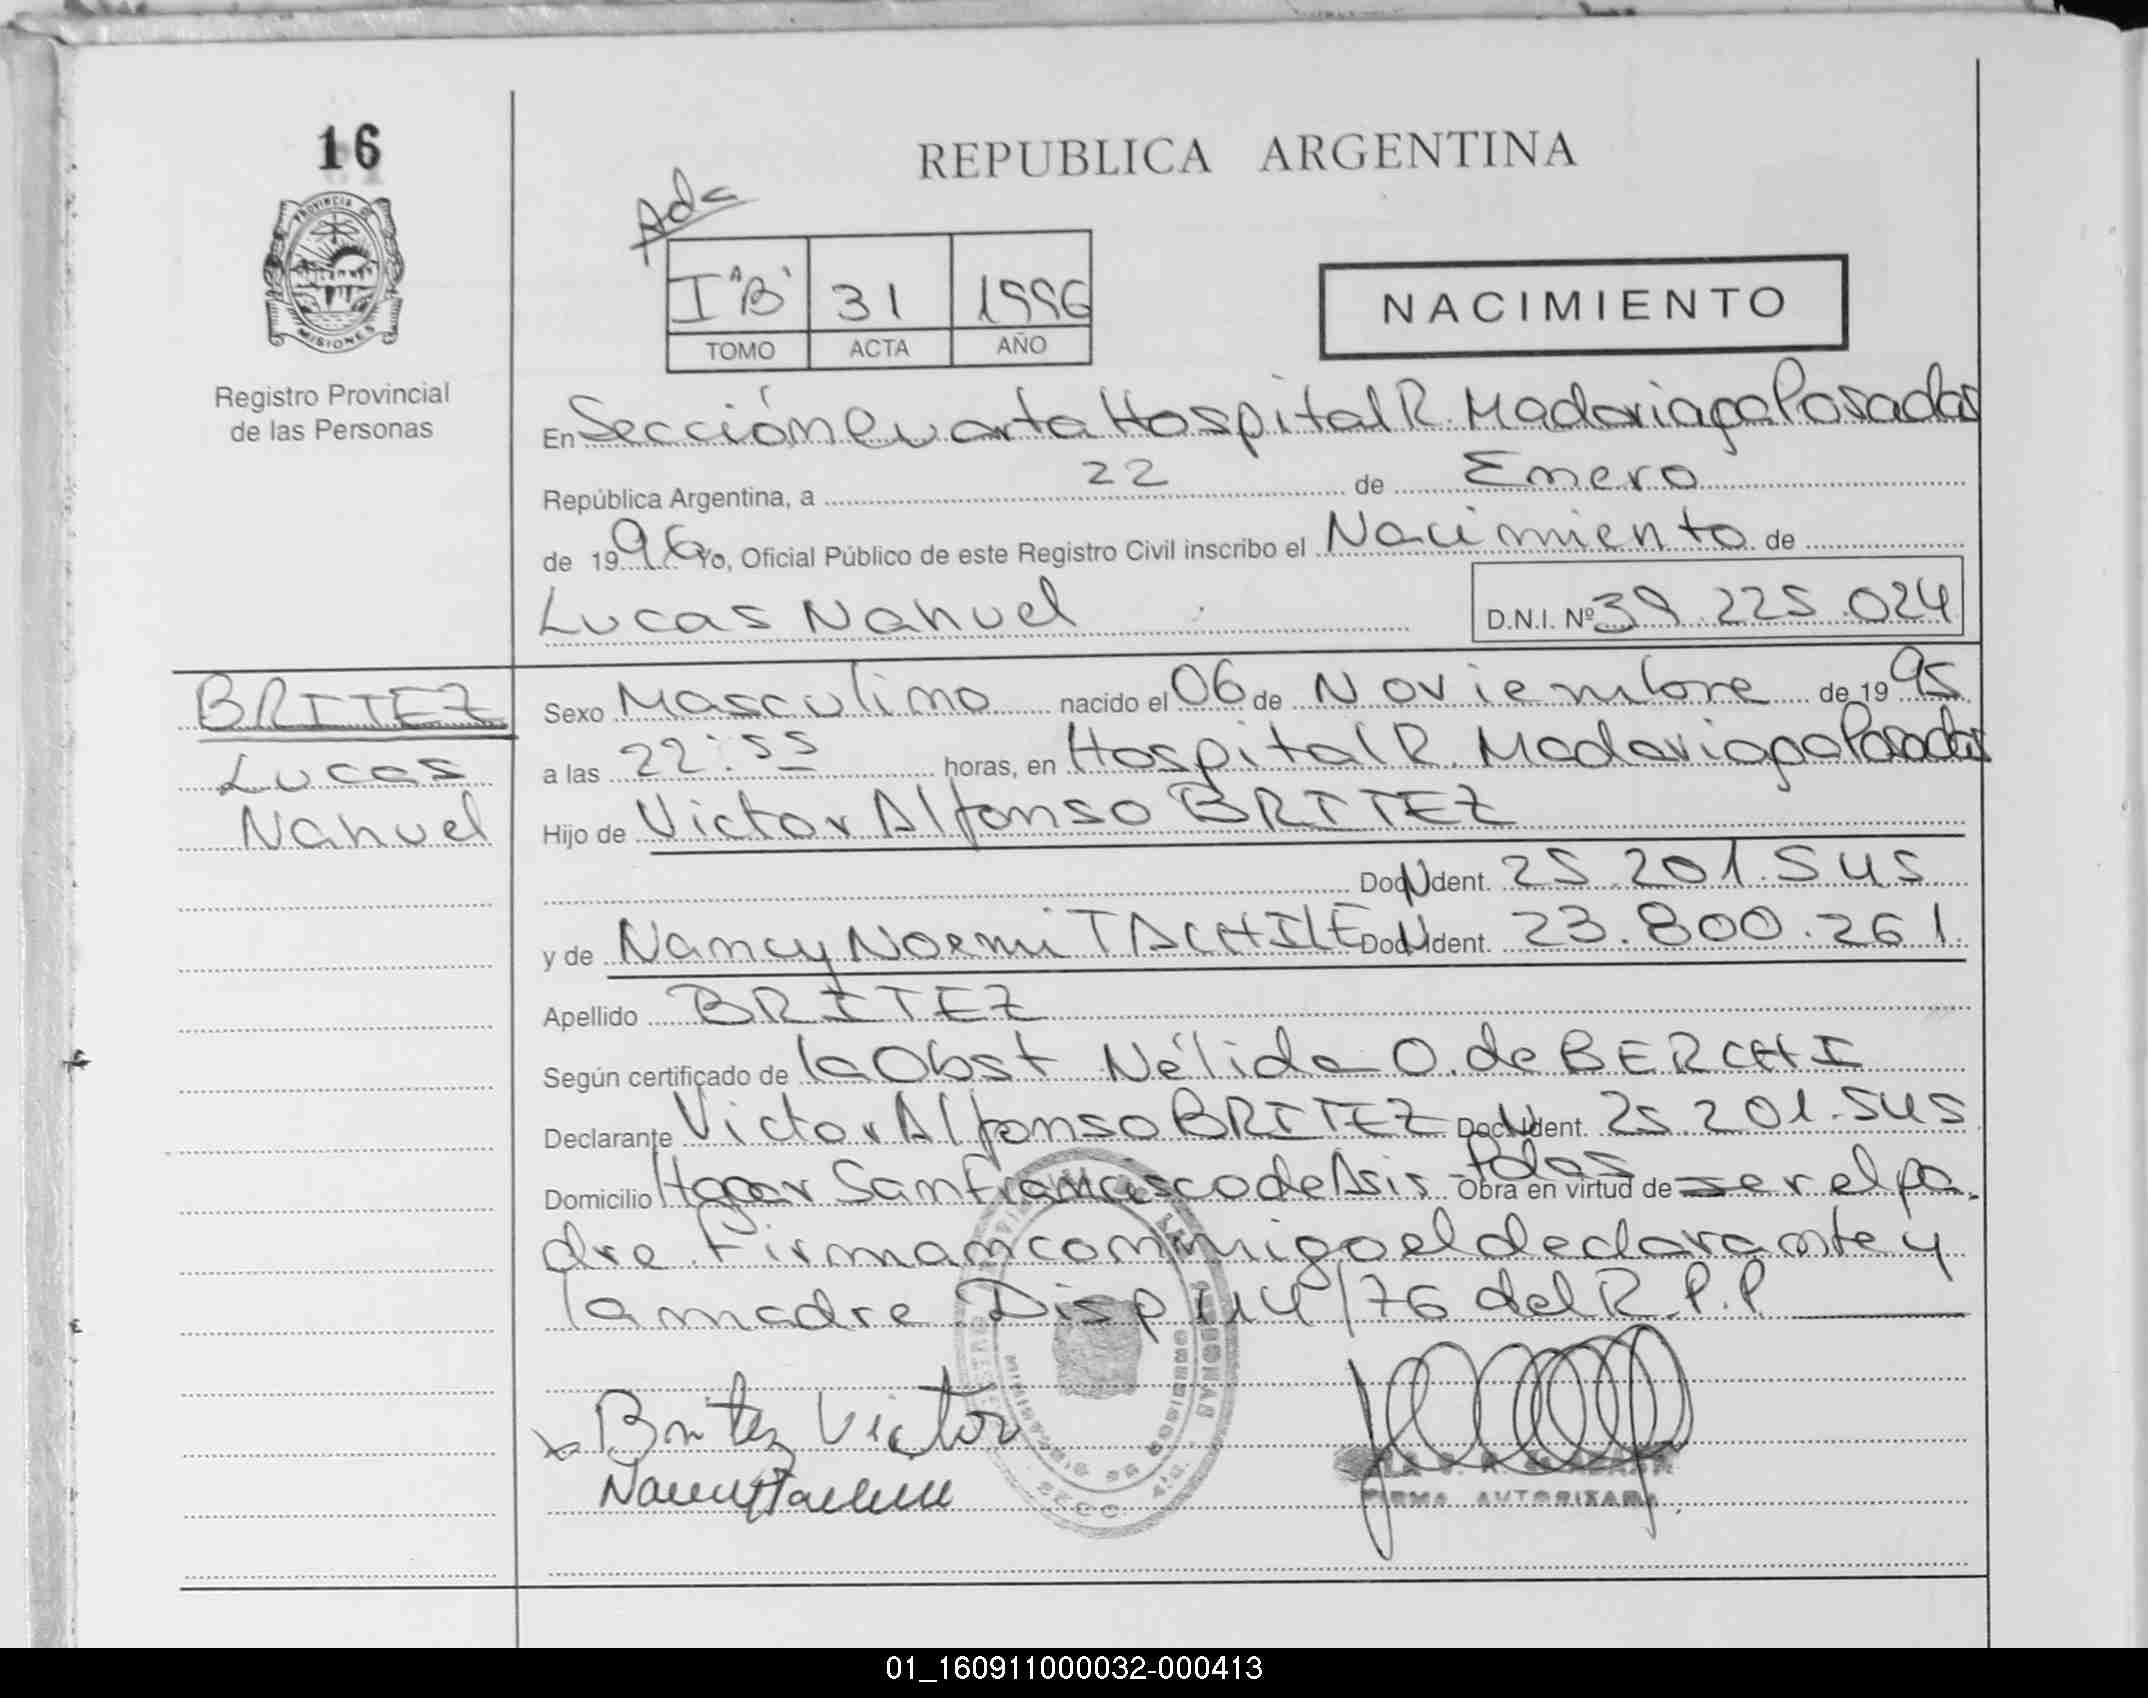 16
REPUBLICA ARGENTINA
Ada
PROVINCIA DE
MISIONES
I "B" 31 1996
TOMO ACTA AÑO
NACIMIENTO
Registro Provincial
de las Personas
En Sección Cuarta Hospital R. Madariaga Posadas
República Argentina, a 22 de Enero
de 1996 Yo, Oficial Público de este Registro Civil inscribo el Nacimiento de
Lucas Nahuel D.N.I. Nº 39.225.024
BRITEZ
Lucas
Nahuel
Sexo Masculino nacido el 06 de Noviembre de 1995
a las 22:55 horas, en Hospital R. Madariaga Posadas
Hijo de Victor Alfonso BRITEZ
Doc. Ident. 25.201.545
y de Nancy Noemi TACHILE Doc. Ident. 23.800.261.
Apellido BRITEZ
Según certificado de la Obst Nélida O. de BERCHI
Declarante Victor Alfonso BRITEZ Doc. Ident. 25.201.545
Domicilio Hogar San Francisco de Asis - Pdas Obra en virtud de ser el pa
dre. Firman conmigo el declarante y
la madre. Disp 114/76 del R.P.P.
Britez Victor
FIRMA AUTORIZADA
01_160911000032-000413